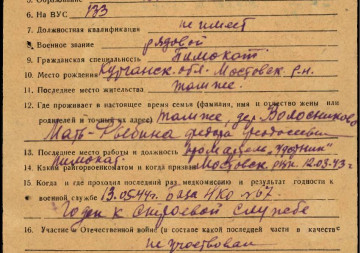 6. На ВУС 133
7. Должностная квалификация не имеет
8. Военное звание рядовой
9. Гражданская специальность Пимокат
10. Место рождения Курганск. обл. Мостовск. р-н.
11. Последнее место жительства там же.
12. Где проживает в настоящее время семья (фамилия, имя и отчество жены или
родителей и точный их адрес) там же, дер.
Мать-Рыбина
13. Последнее место работы и должность промартель
Пимокат.
14. Каким райгорвоенкоматом и когда призван Мостовск. РВК.
15. Когда и где проходил последний раз медкомиссию и результат годности к
военной службе
Годен к строевой службе
16. Участие в Отечественной войне (в составе какой последней части в качестве
не участвовал